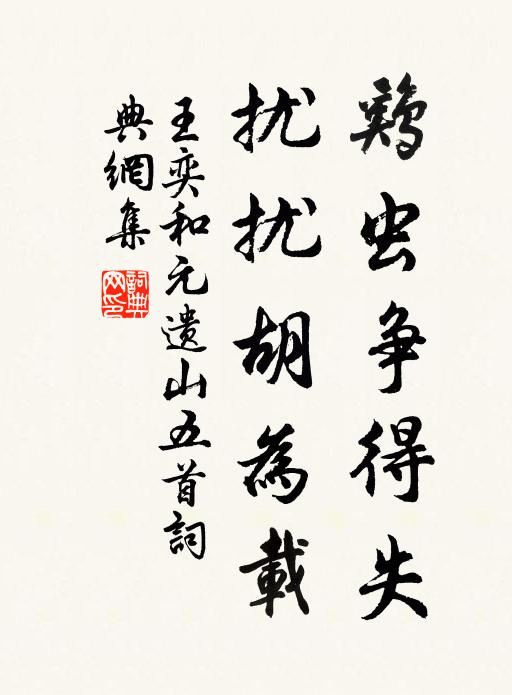 鷄虫争得失
扰扰胡為載
王奕和元遺山五首詞
典網集
詞典網印